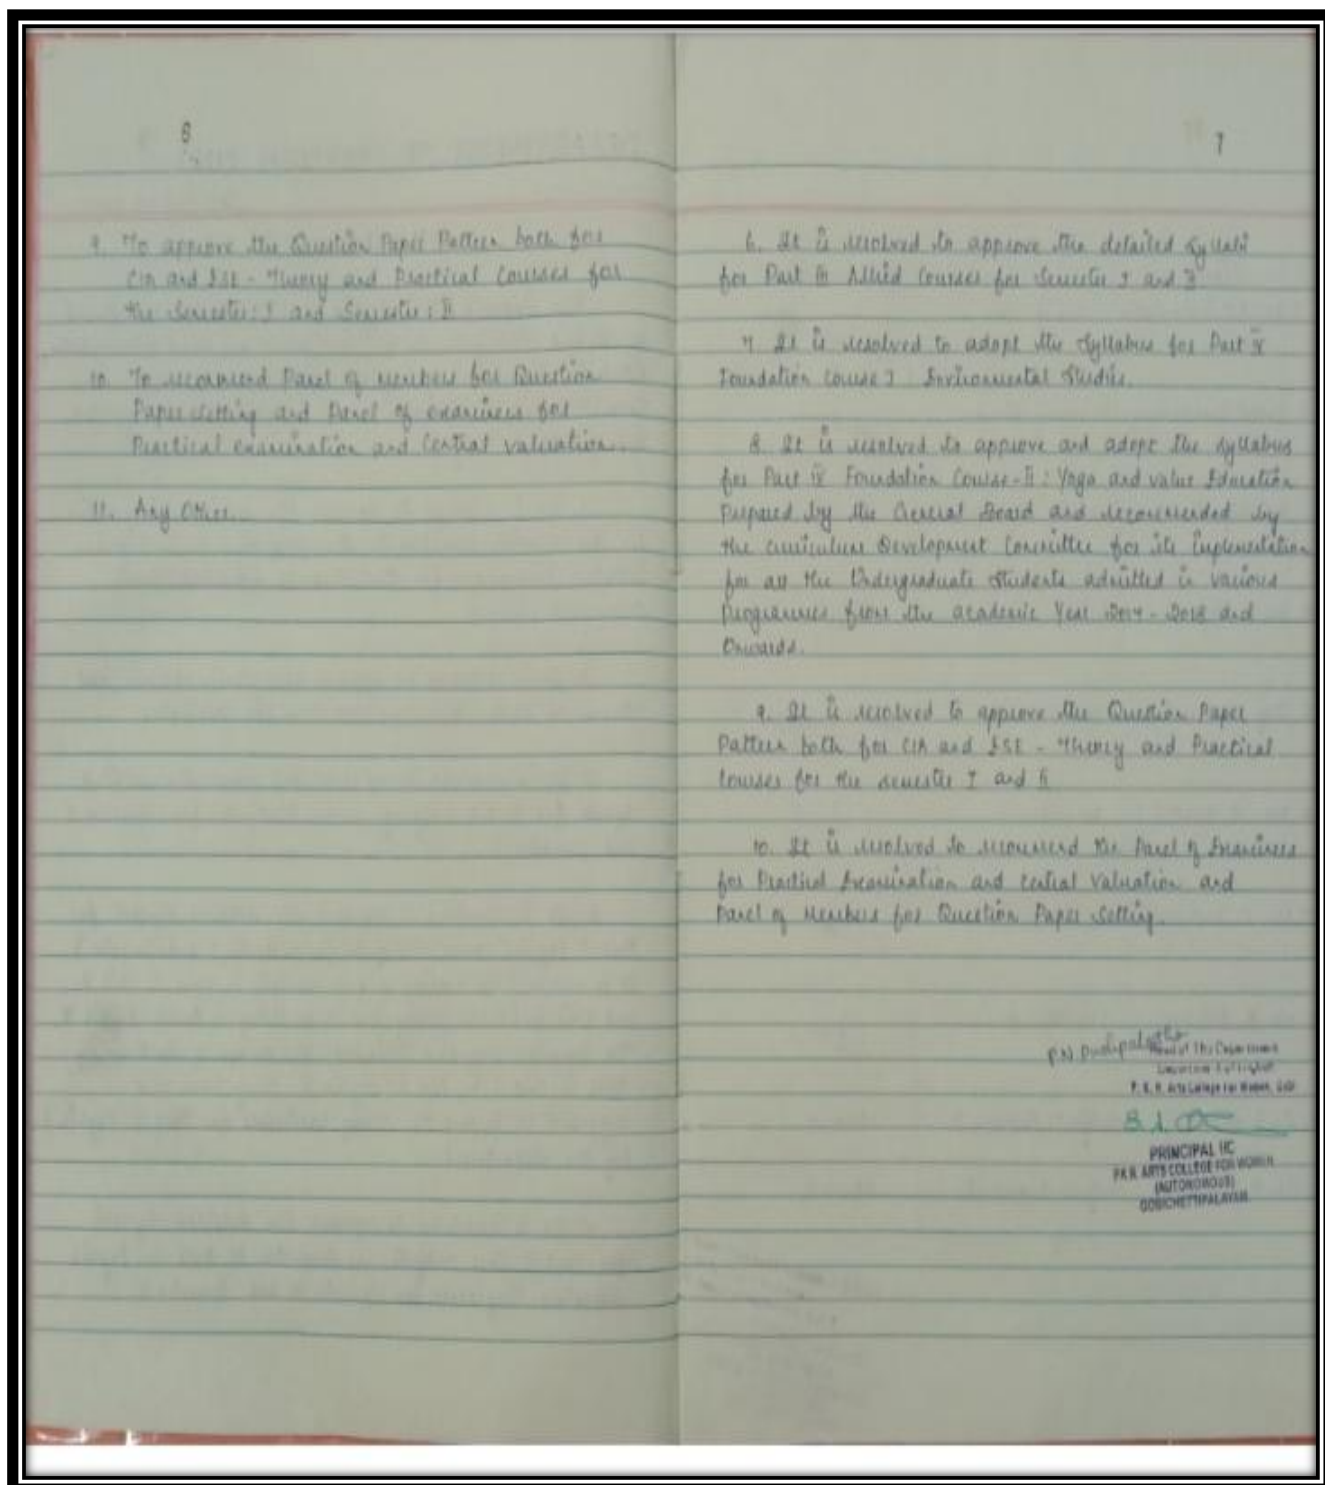 6
9. To approve the Question Paper Pattern both for
CIA and ESE - Theory and Practical Courses for
the Semester: I and Semester: II
10. To recommend Panel of members for Question
Paper setting and Panel of examiners for
Practical examination and Central valuation.
11. Any Other.
7
6. It is resolved to approve the detailed Syllabi
for Part III Allied Courses for Semester I and II
7. It is resolved to adopt the Syllabus for Part IV
Foundation Course I Environmental Studies.
8. It is resolved to approve and adopt the syllabus
for Part IV Foundation Course-II: Yoga and value Education
Prepared by the General Board and recommended by
the curriculum Development Committee for its Implementation
for all the Undergraduate Students admitted in various
Programmes from the academic Year 2017-2018 and
Onwards.
9. It is resolved to approve the Question Paper
Pattern both for CIA and ESE - Theory and Practical
Courses for the semester I and II
10. It is resolved to recommend the Panel of Examiners
for Practical Examination and central Valuation and
Panel of Members for Question Paper Setting.
P.N.
Head of The Department
Department of English
P. K. R. Arts College For Women, Gobi
PRINCIPAL I/C
P.K.R. ARTS COLLEGE FOR WOMEN
(AUTONOMOUS)
GOBICHETTIPALAYAM